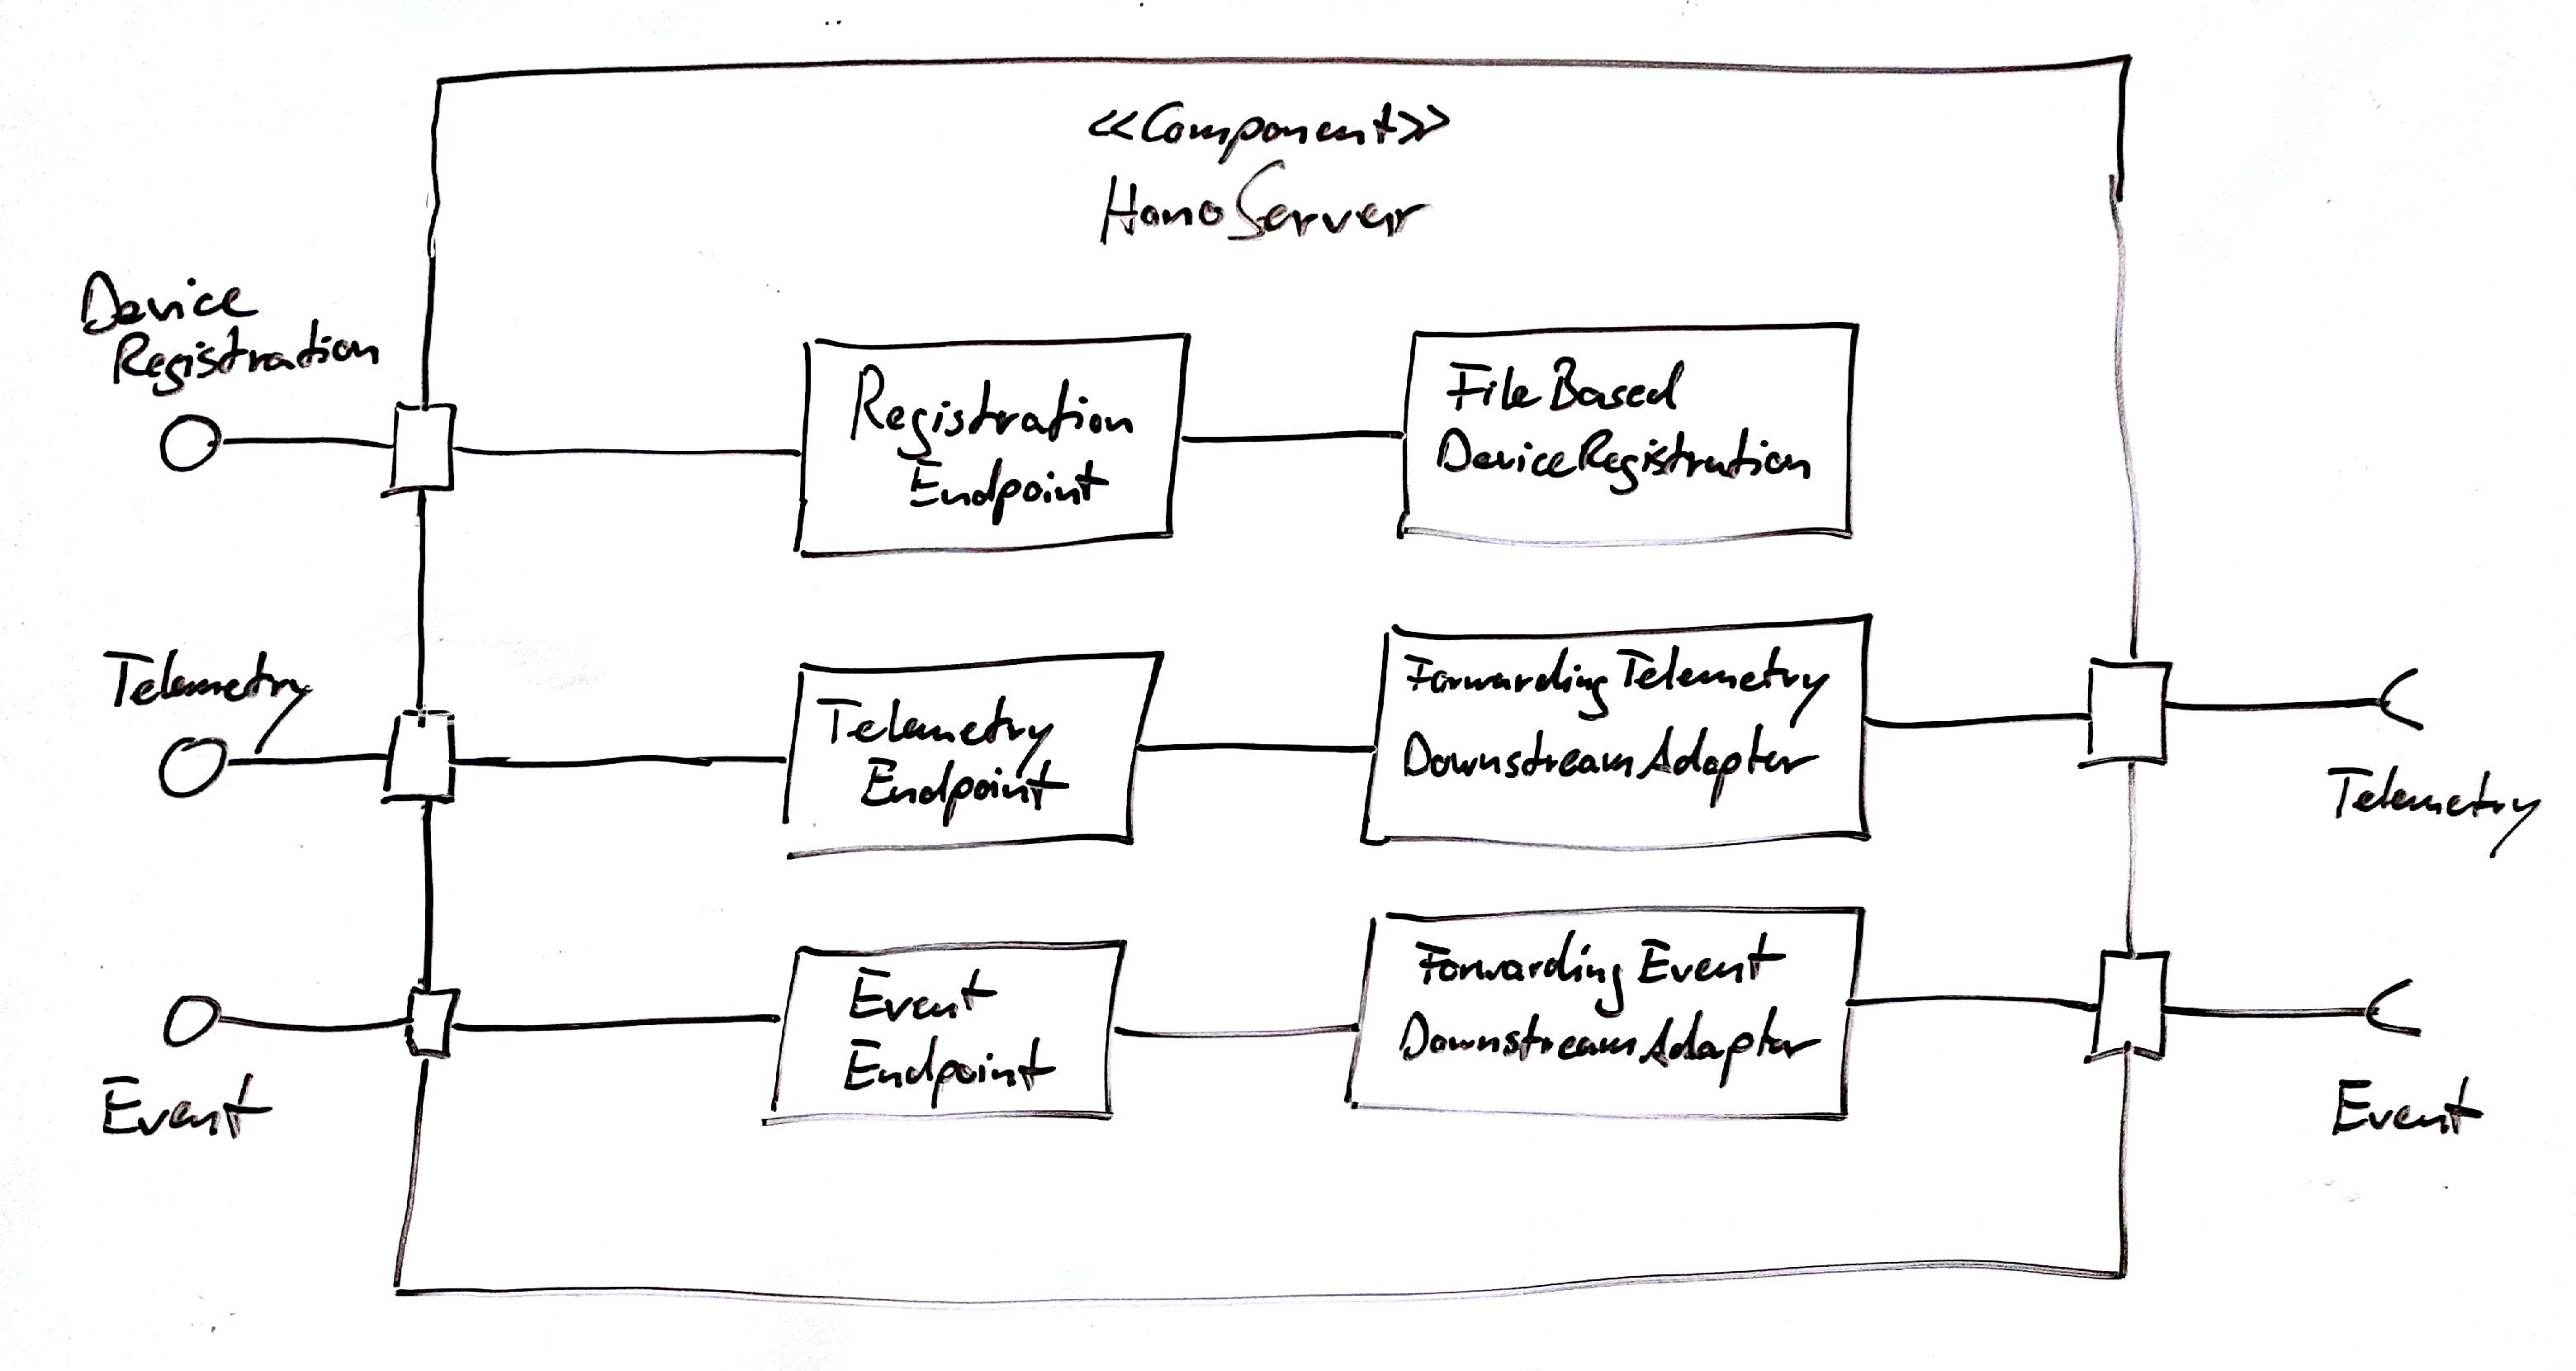 <<Component>>
HonoServer
Device
Registration
Registration
Endpoint
FileBased
DeviceRegistration
Telemetry
Telemetry
Endpoint
ForwardingTelemetry
DownstreamAdapter
Telemetry
Event
Event
Endpoint
ForwardingEvent
DownstreamAdapter
Event